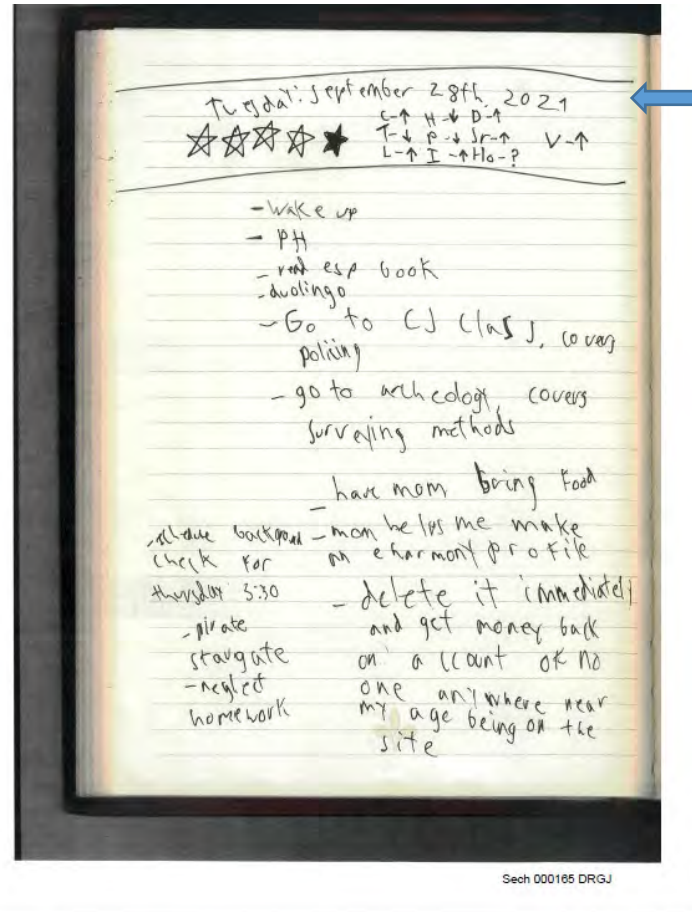 Tuesday: September 28th, 2021
C-↑ H-↓ D-↑
T-↓ P-↓ Sr-↑ V-↑
L-↑ I-↑ Ho-?
- wake up
- PH
- read esp book
- duolingo
- Go to CJ class, covers
policing
- go to archeology, covers
surveying methods
- have mom bring food
- mom helps me make
an eharmony profile
- delete it immediately
and get money back
on account of no
one anywhere near
my age being on the
site
- schedule background
check for
thursday 3:30
- pirate
stargate
- neglect
homework
Sech 000165 DRGJ